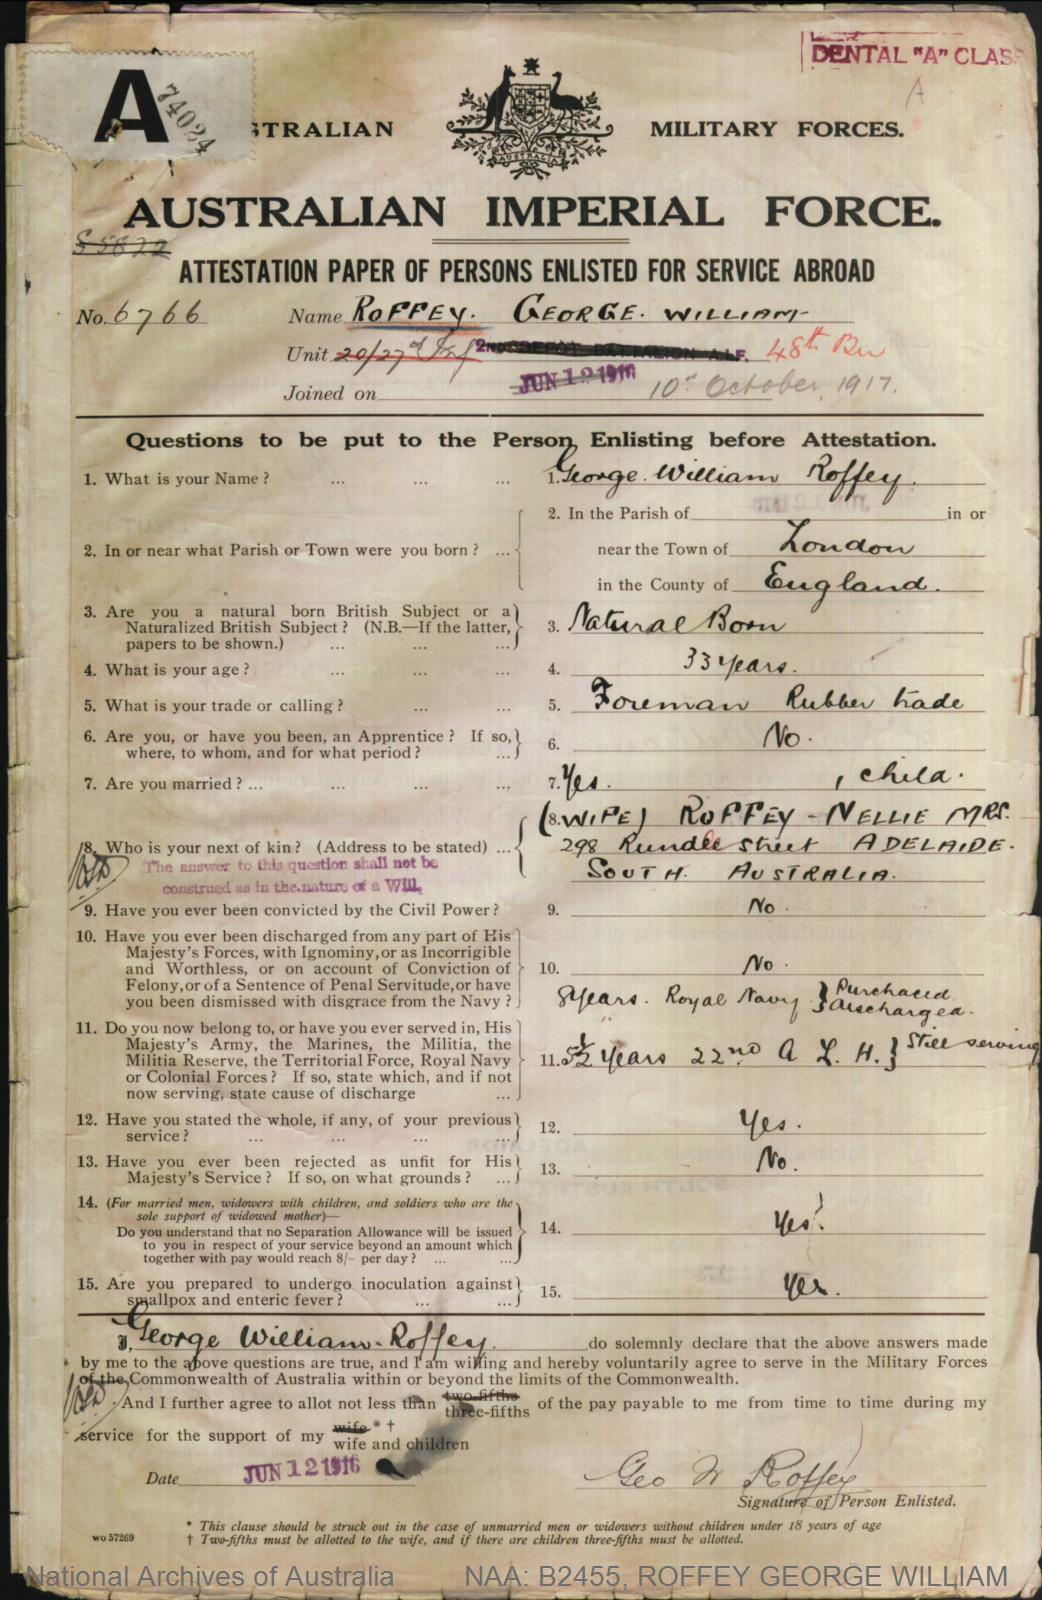 DENTAL "A" CLASS
A
A 74024
STRALIAN MILITARY FORCES.
AUSTRALIA
AUSTRALIAN IMPERIAL FORCE.
ATTESTATION PAPER OF PERSONS ENLISTED FOR SERVICE ABROAD
No. 6766 Name ROFFEY. GEORGE. WILLIAM
Unit 20/27th Inf 2ND DEPOT BATTALION A.I.F. 48th Bn
Joined on JUN 12 1916 10th October, 1917.
Questions to be put to the Person Enlisting before Attestation.
1. What is your Name? ... ... ... 1. George. William Roffey.
2. In the Parish of in or
2. In or near what Parish or Town were you born? ... near the Town of London
in the County of England.
3. Are you a natural born British Subject or a
Naturalized British Subject? (N.B.—If the latter, 3. Natural Born
papers to be shown.) ... ... ...
4. What is your age? ... ... ... 4. 33 years.
5. What is your trade or calling? ... ... 5. Foreman Rubber trade
6. Are you, or have you been, an Apprentice? If so, 6. No.
where, to whom, and for what period? ...
7. Are you married? ... ... ... ... 7. Yes. 1 child.
8. (WIFE) ROFFEY - NELLIE MRS.
8. Who is your next of kin? (Address to be stated) ... 298 Rundle Street ADELAIDE.
The answer to this question shall not be
construed as in the nature of a Will. SOUTH. AUSTRALIA.
9. Have you ever been convicted by the Civil Power? 9. No.
10. Have you ever been discharged from any part of His
Majesty's Forces, with Ignominy, or as Incorrigible
and Worthless, or on account of Conviction of 10. No.
Felony, or of a Sentence of Penal Servitude, or have
you been dismissed with disgrace from the Navy?
8 years. Royal Navy } Purchased discharged.
11. Do you now belong to, or have you ever served in, His
Majesty's Army, the Marines, the Militia, the
Militia Reserve, the Territorial Force, Royal Navy 11. 5½ years 22nd A L. H. } Still serving
or Colonial Forces? If so, state which, and if not
now serving, state cause of discharge ...
12. Have you stated the whole, if any, of your previous 12. Yes.
service? ... ... ... ...
13. Have you ever been rejected as unfit for His 13. No.
Majesty's Service? If so, on what grounds? ...
14. (For married men, widowers with children, and soldiers who are the
sole support of widowed mother)—
Do you understand that no Separation Allowance will be issued 14. Yes.
to you in respect of your service beyond an amount which
together with pay would reach 8/- per day? ... ...
15. Are you prepared to undergo inoculation against 15. Yes.
smallpox and enteric fever? ... ...
I, George William. Roffey. do solemnly declare that the above answers made
by me to the above questions are true, and I am willing and hereby voluntarily agree to serve in the Military Forces
of the Commonwealth of Australia within or beyond the limits of the Commonwealth.
And I further agree to allot not less than two-fifths
three-fifths of the pay payable to me from time to time during my
service for the support of my wife * †
wife and children
Date JUN 12 1916 Geo W Roffey
Signature of Person Enlisted.
* This clause should be struck out in the case of unmarried men or widowers without children under 18 years of age
wo 57269 † Two-fifths must be allotted to the wife, and if there are children three-fifths must be allotted.
National Archives of Australia NAA: B2455, ROFFEY GEORGE WILLIAM